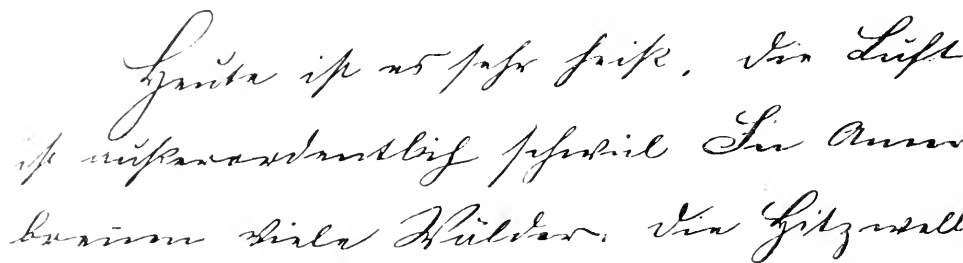 Heute ist es sehr heiß. Die Luft
ist außerordentlich schwül In Amer
brennen viele Wälder. Die Hitzwell